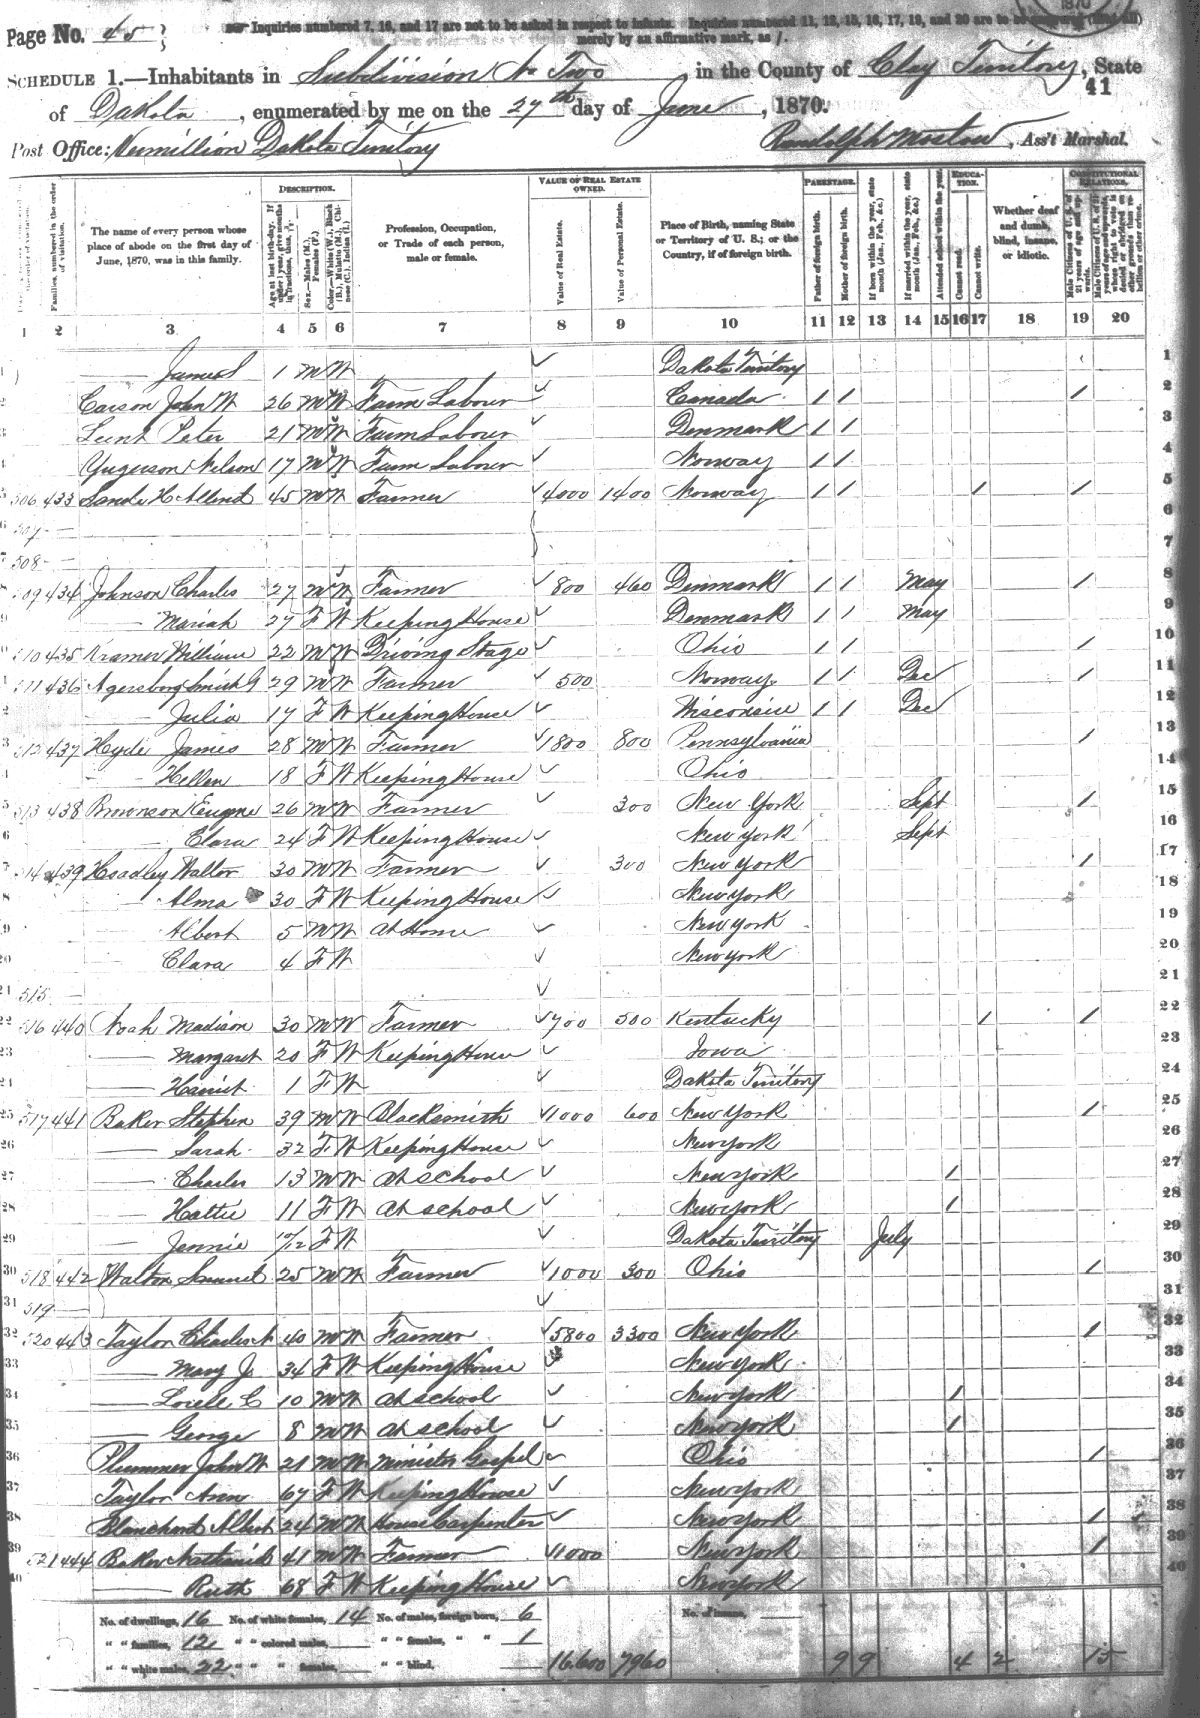 Page No. 45
Inquiries numbered 7, 16, and 17 are not to be asked in respect to infants. Inquiries numbered 11, 12, 15, 16, 17, 19, and 20 are to be answered (if at all)
merely by an affirmative mark, as /.
1870
SCHEDULE 1.—Inhabitants in Subdivision No Two in the County of Clay Territory, State
41
of Dakota, enumerated by me on the 27th day of June, 1870.
Post Office: Vermillion Dakota Territory
Ass't Marshal.
Families, numbered in the order of visitation.
The name of every person whose place of abode on the first day of June, 1870, was in this family.
DESCRIPTION.
Age at last birth-day. If under 1 year, give months in fractions, thus,
Sex.—Males (M.), Females (F.)
Color.—White (W.), Black (B.), Mulatto (M.), Chinese (C.), Indian (I.)
Profession, Occupation, or Trade of each person, male or female.
VALUE OF REAL ESTATE OWNED.
Value of Real Estate.
Value of Personal Estate.
Place of Birth, naming State or Territory of U. S.; or the Country, if of foreign birth.
PARENTAGE.
Father of foreign birth.
Mother of foreign birth.
If born within the year, state month (Jan., Feb., &c.)
If married within the year, state month (Jan., Feb., &c.)
EDUCATION.
Attended school within the year.
Cannot read.
Cannot write.
Whether deaf and dumb, blind, insane, or idiotic.
CONSTITUTIONAL RELATIONS.
Male Citizens of U. S. of 21 years of age and upwards.
1 2 3 4 5 6 7 8 9 10 11 12 13 14 15 16 17 18 19 20
—— James S 1 M W Dakota Territory 1
Carson John W 26 M W Farm Labourer Canada / / / 2
Peter 21 M W Farm Labourer Denmark / / 3
Nelson 17 M W Farm Labourer Norway / / 4
506 433 45 M W Farmer 4000 1400 Norway / / / / 5
507 — 6
508 — 7
509 434 Johnson Charles 27 M W Farmer 800 460 Denmark / / May / 8
—— Mariah 27 F W Keeping House Denmark / / May 9
510 435 Kramer William 22 M W Driving Stage Ohio / / / 10
511 436 Agersborg Smith G 29 M W Farmer 500 Norway / / Dec / 11
—— Julia 17 F W Keeping House Wisconsin / / Dec 12
512 437 Hyde James 28 M W Farmer 1800 800 Pennsylvania / 13
—— Hellen 18 F W Keeping House Ohio 14
513 438 Brownson Eugene 26 M W Farmer 300 New York Sept / 15
—— Clara 24 F W Keeping House New York Sept 16
514 439 Hoadley Walter 30 M W Farmer 300 New York / 17
—— Alma 30 F W Keeping House New York 18
—— Albert 5 M W At Home New York 19
—— Clara 4 F W New York 20
515 — 21
516 440 Noah Madison 30 M W Farmer 700 500 Kentucky / / 22
—— Margaret 20 F W Keeping House Iowa 23
—— Harriet 1 F W Dakota Territory 24
517 441 Baker Stephen 39 M W Blacksmith 1000 600 New York / 25
—— Sarah 32 F W Keeping House New York 26
—— Charles 13 M W At School New York / 27
—— Hattie 11 F W At School New York / 28
—— Jennie 10/12 F W Dakota Territory July 29
518 442 Walton Samuel 25 M W Farmer 1000 300 Ohio / 30
519 — 31
520 443 Taylor Charles N 40 M W Farmer 5800 3300 New York / 32
—— Mary J 34 F W Keeping House New York 33
—— C 10 M W At School New York / 34
—— George 8 M W At School New York / 35
Plummer John W 21 M W Minister Gospel Ohio / 36
Taylor Ann 67 F W Keeping House New York 37
Blanchard Albert 24 M W House Carpenter New York / 38
521 444 Baker Nathaniel 41 M W Farmer 1000 New York / 39
—— Ruth 68 F W Keeping House New York 40
No. of dwellings, 16 No. of white females, 14 No. of males, foreign born, 6 No. of insane,
" " families, 12 " " colored males, " " females, " " 1
" " white males, 22 " " " females, " " blind, 16.600 7960 9 9 4 2 15